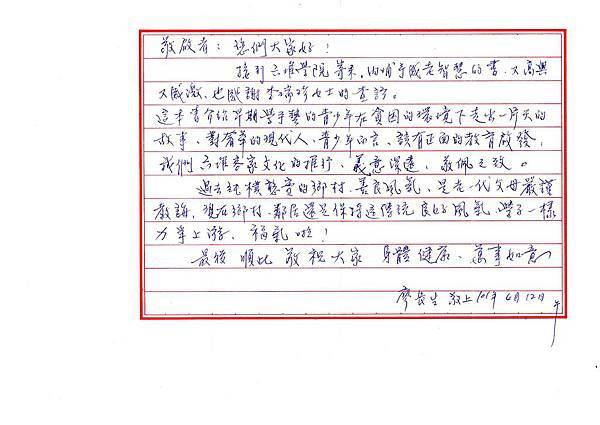 敬啟者：您們大家好！
接到六堆學院寄來，內埔耆老智慧的書，又高興
又感激，也感謝李 女士的查訪。
這本書介紹早期學手藝的青少年在貧困的環境下走出一片天的
故事，對奢華的現代人，青少年而言，該有正面的教育啟發，
我們六堆客家文化的推行，義意深遠，敬佩之致。
過去純樸憨實的鄉村，善良風氣，是老一代父母嚴謹
教誨，現在鄉村，鄰居還是保持這傳統良好風氣，學子一樣
力爭上游，福氣啦！
最後順此敬祝大家身體健康、萬事如意
廖長 敬上101年6月12日午